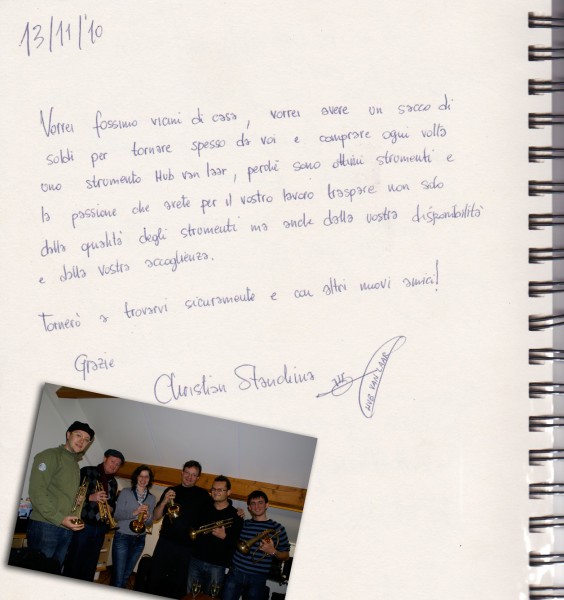 13/11/'10
Vorrei fossimo vicini di casa, vorrei avere un sacco di
soldi per tornare spesso da voi e comprare ogni volta
uno strumento Hub van Laar, perché sono ottimi strumenti e
la passione che avete per il vostro lavoro traspare non solo
dalla qualità degli strumenti ma anche dalla vostra disponibilità
e dalla vostra accoglienza.
Tornerò a trovarvi sicuramente e con altri nuovi amici!
Grazie
Christian Stanchina
HUB VAN LAAR